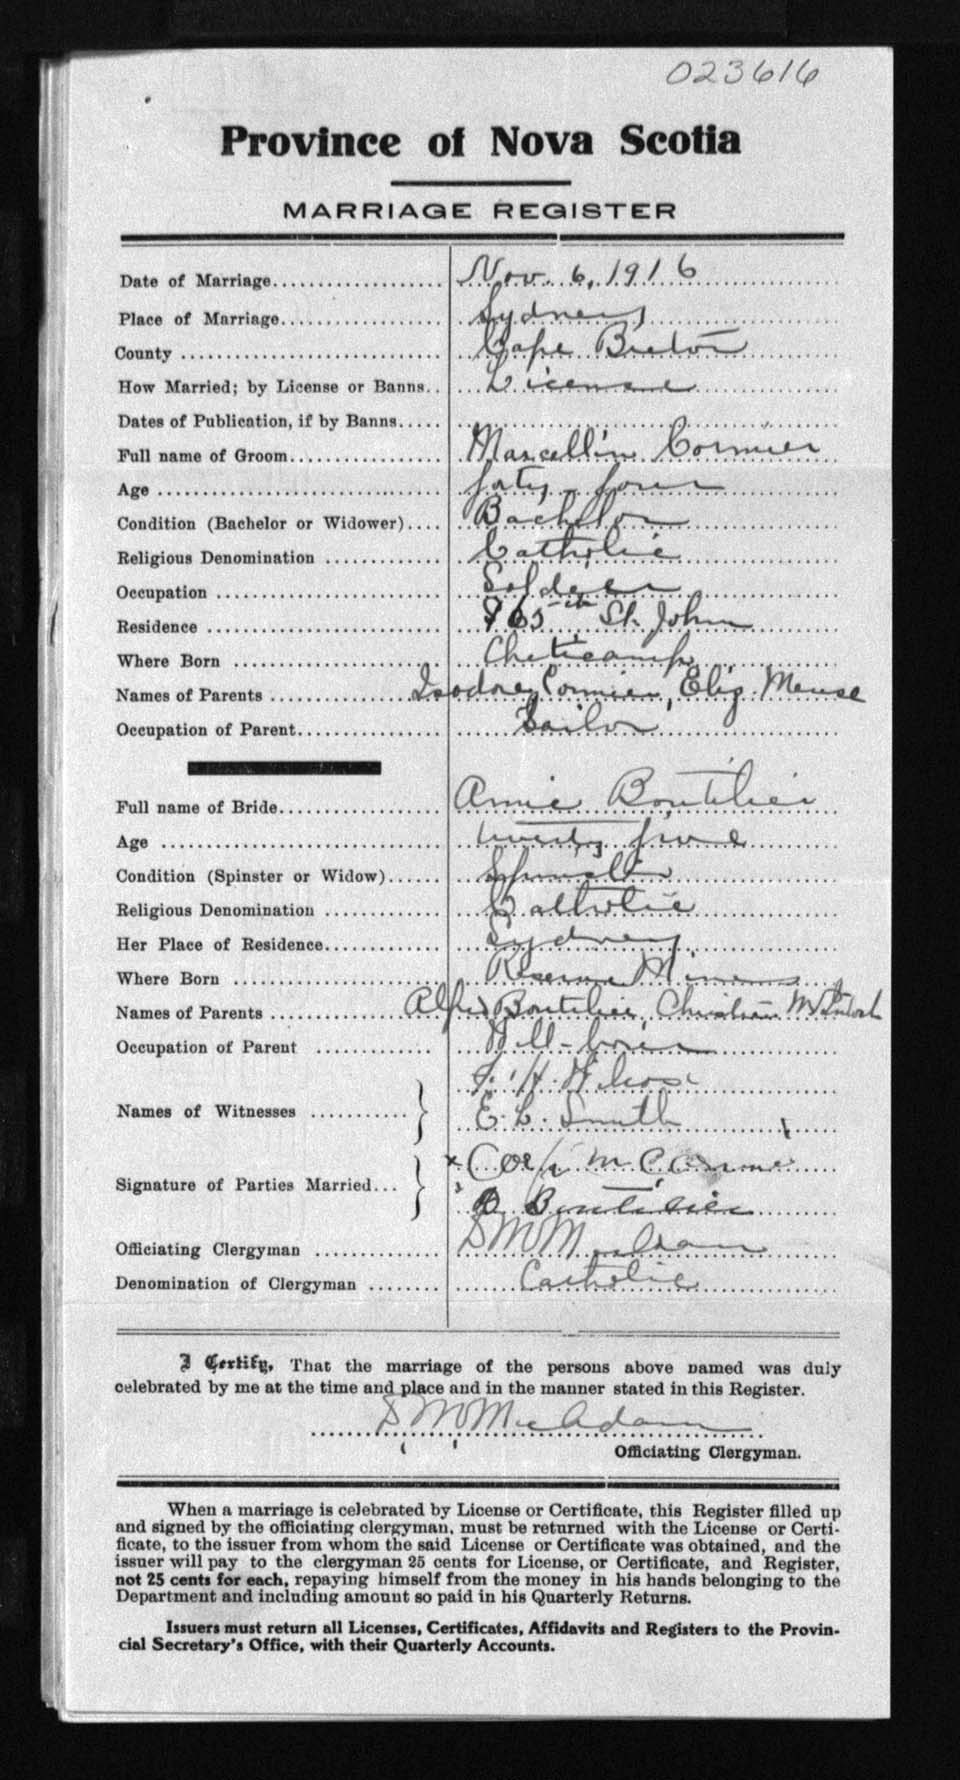 023616
Province of Nova Scotia
MARRIAGE REGISTER
Date of Marriage Nov. 6, 1916
Place of Marriage Sydney
County Cape Breton
How Married; by License or Banns License
Dates of Publication, if by Banns
Full name of Groom Marcellin Cormier
Age forty-four
Condition (Bachelor or Widower) Bachelor
Religious Denomination Catholic
Occupation Soldier
Residence 165th St. John
Where Born Cheticamp
Names of Parents Isodore Cormier, Eliz. Meuse
Occupation of Parent
Full name of Bride Annie Boutilier
Age twenty five
Condition (Spinster or Widow) Spinster
Religious Denomination Catholic
Her Place of Residence Sydney
Where Born Reserve Mines
Names of Parents Alfred Boutilier, Christina McIntosh
Occupation of Parent Well-borer
Names of Witnesses
E. L. Smith
Signature of Parties Married
Boutilier
Officiating Clergyman D M McAdam
Denomination of Clergyman Catholic
I Certify, That the marriage of the persons above named was duly
celebrated by me at the time and place and in the manner stated in this Register.
D M McAdam
Officiating Clergyman.
When a marriage is celebrated by License or Certificate, this Register filled up
and signed by the officiating clergyman, must be returned with the License or Certi-
ficate, to the issuer from whom the said License or Certificate was obtained, and the
issuer will pay to the clergyman 25 cents for License, or Certificate, and Register,
not 25 cents for each, repaying himself from the money in his hands belonging to the
Department and including amount so paid in his Quarterly Returns.
Issuers must return all Licenses, Certificates, Affidavits and Registers to the Provin-
cial Secretary's Office, with their Quarterly Accounts.